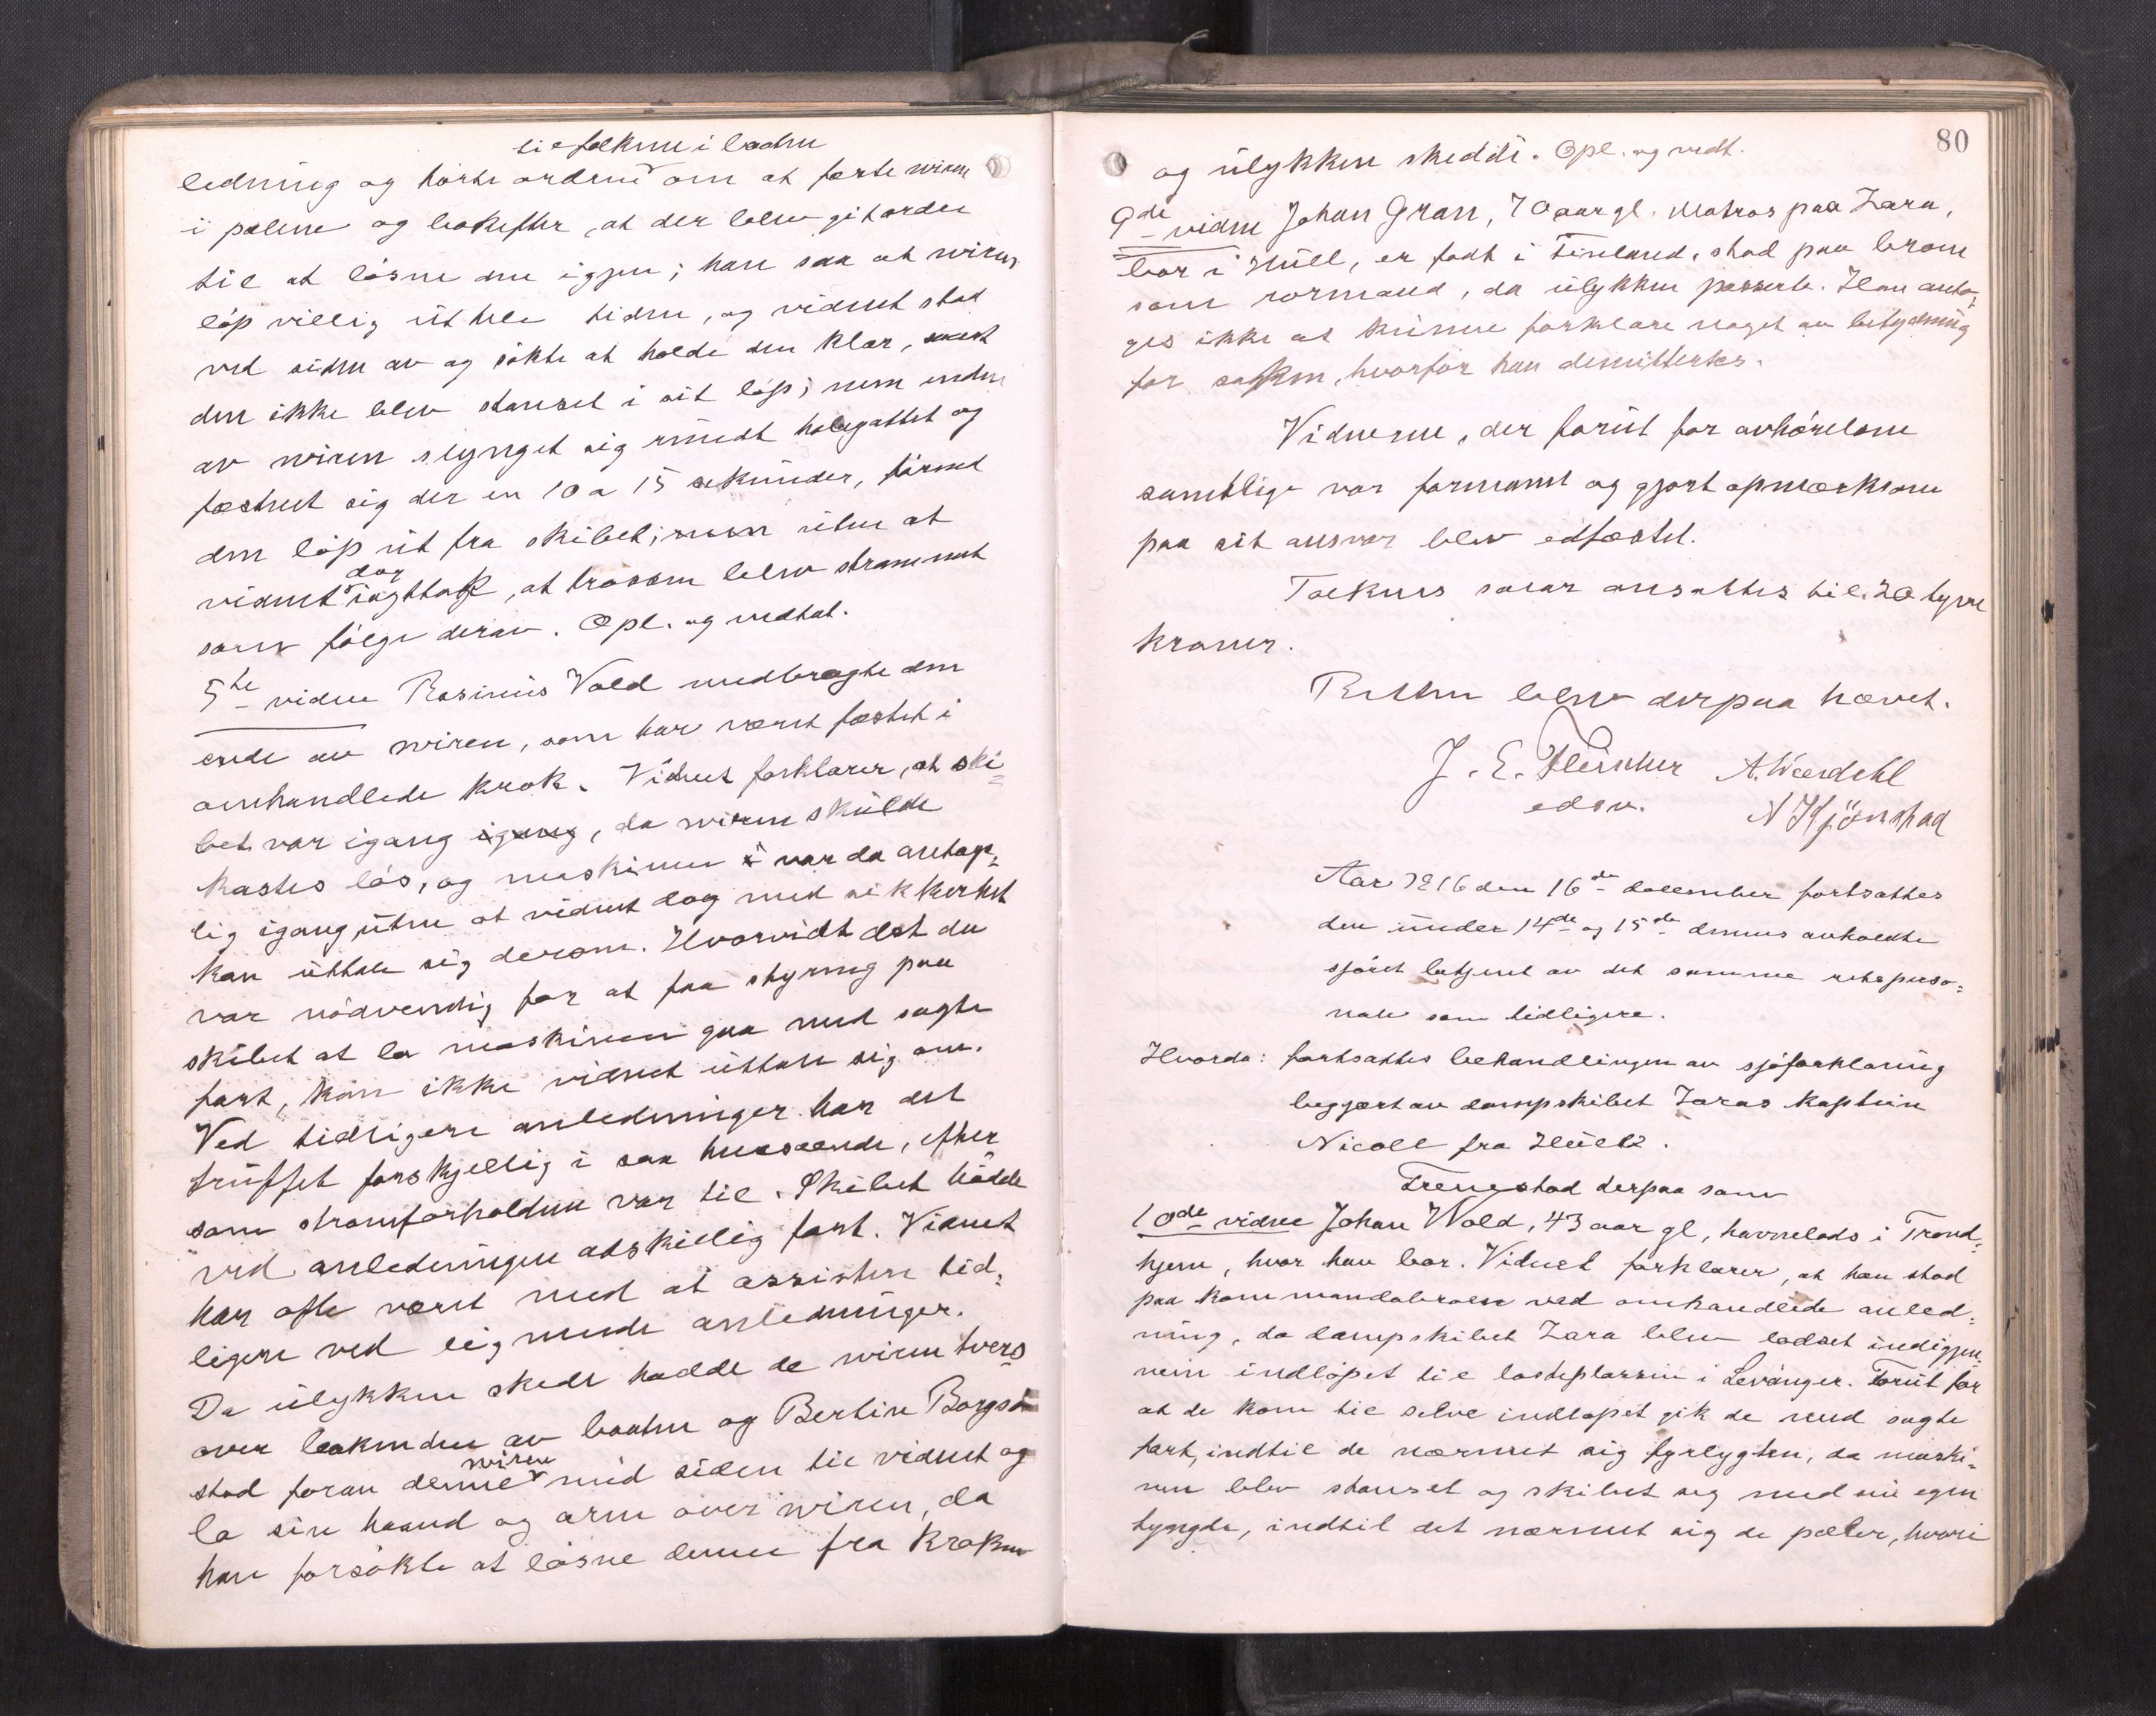 til folkene i baaten
ledning og hørte ordren om at feste wiren
i pælene og bakefter, at der blev git order
til at løsne den igjen; han saa at wiren
løp villig ut hele tiden, og vidnet stod
ved siden av og søkte at holde den klar, saa at
den ikke blev stanset i sit løp; men enden
av wiren slynget sig rundt halegattet og
fæstnet sig der en 10 a 15 sekunder, førend
den løp ut fra skibet; uten at
dog
vidnet iagttok, at trossen blev strammet
som følge derav. Opl. og vedtat.
5te vidne Rasmus Vold medbragte den
ende av wiren, som har været fæstet i
omhandlede krok. Vidnet forklarer, at ski=
bet var igang igang, da wiren skulde
kastes løs, og maskinen i var da antage=
lig igang, uten at vidnet dog med sikkerhet
kan uttale sig derom. Hvorvidt det da
var nødvendig for at faa styring paa
skibet at la maskinen gaa med sagte
fart, kan ikke vidnet uttale sig om.
Ved tidligere anledninger har det
truffet forskjellig i saa henseende, efter
som strømforholdene var til. Skibet hadde
ved anledningen adskillig fart. Vidnet
har ofte været med at assistere tid=
ligere ved lignende anledninger.
Da ulykken skede hadde de wiren tvers
over bakenden av baaten og Bertin Borgsö
wiren
stod foran denne med siden til vidnet og
la sin haand og arm over wiren, da
han forsøkte at løsne denne fra kroken
80
og ulykken skedde. Opl. og vedt.
9de vidne Johan Gran, 70 aar gl. Matros paa Zara,
bor i Hull, er født i Finland, stod paa broen
som rormand, da ulykken passerte. Han anto=
ges ikke at kunne forklare noget av betydning
for saken, hvorfor han demitteres.
Vidnerne, der forut for avhørelsen
samtlige var formanet og gjort opmerksom
paa sit ansvar blev edfæstet.
Tolkens salær ansattes til 20 tyve
kroner.
Retten blev derpaa hævet.
J. E. Fleischer A. Weerdehl
edsv. N Hjönstad
Aar 1916 den 16de december fortsattes
den under 14de og 15de dennes avholdte
sjøret betjent av det samme retsperso=
nale som tidligere.
Hvorda: fortsattes behandlingen av sjøforklaring
begjært av dampskibet Zaras kaptein
Nicoll fra Hull.
Fremstod derpaa som
10de vidne Johan Wold, 43 aar gl, havnelods i Trond=
hjem, hvor han bor. Vidnet forklarer, at han stod
paa kommandobroen ved omhandlede anled=
ning, da dampskibet Zara blev lodset indigjen=
nem indløpet til losteplassen i Levanger. Forut for
at de kom til selve indløpet gik de med sagte
fart, indtil de nærmet sig fyrlygten, da maski=
nen blev stanset og skibet seg med sin egen
tyngde, indtil det nærmet sig de pæler, hvori